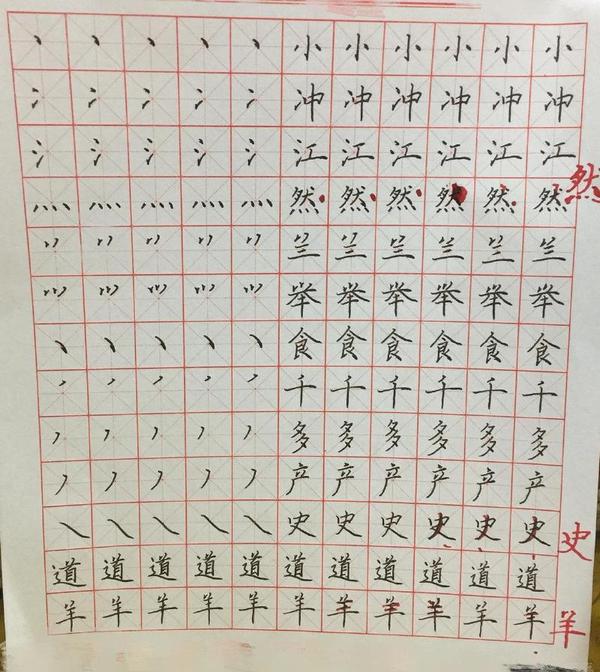 丶丶丶丶丶小小小小小小
冫冫冫冫冫冲冲冲冲冲冲
氵氵氵氵氵江江江江江江
灬灬灬灬灬然然然然然然 然
丷丷丷丷丷兰兰兰兰兰兰
⺍⺍⺍⺍⺍举举举举举举
丶丶丶丶丶食食食食食食
丿丿丿丿丿千千千千千千
丿丿丿丿丿多多多多多多
丿丿丿丿丿产产产产产产
㇏㇏㇏㇏㇏史史史史史史 史
道道道道道道道道道道道
羊羊羊羊羊羊羊羊羊羊羊 羊